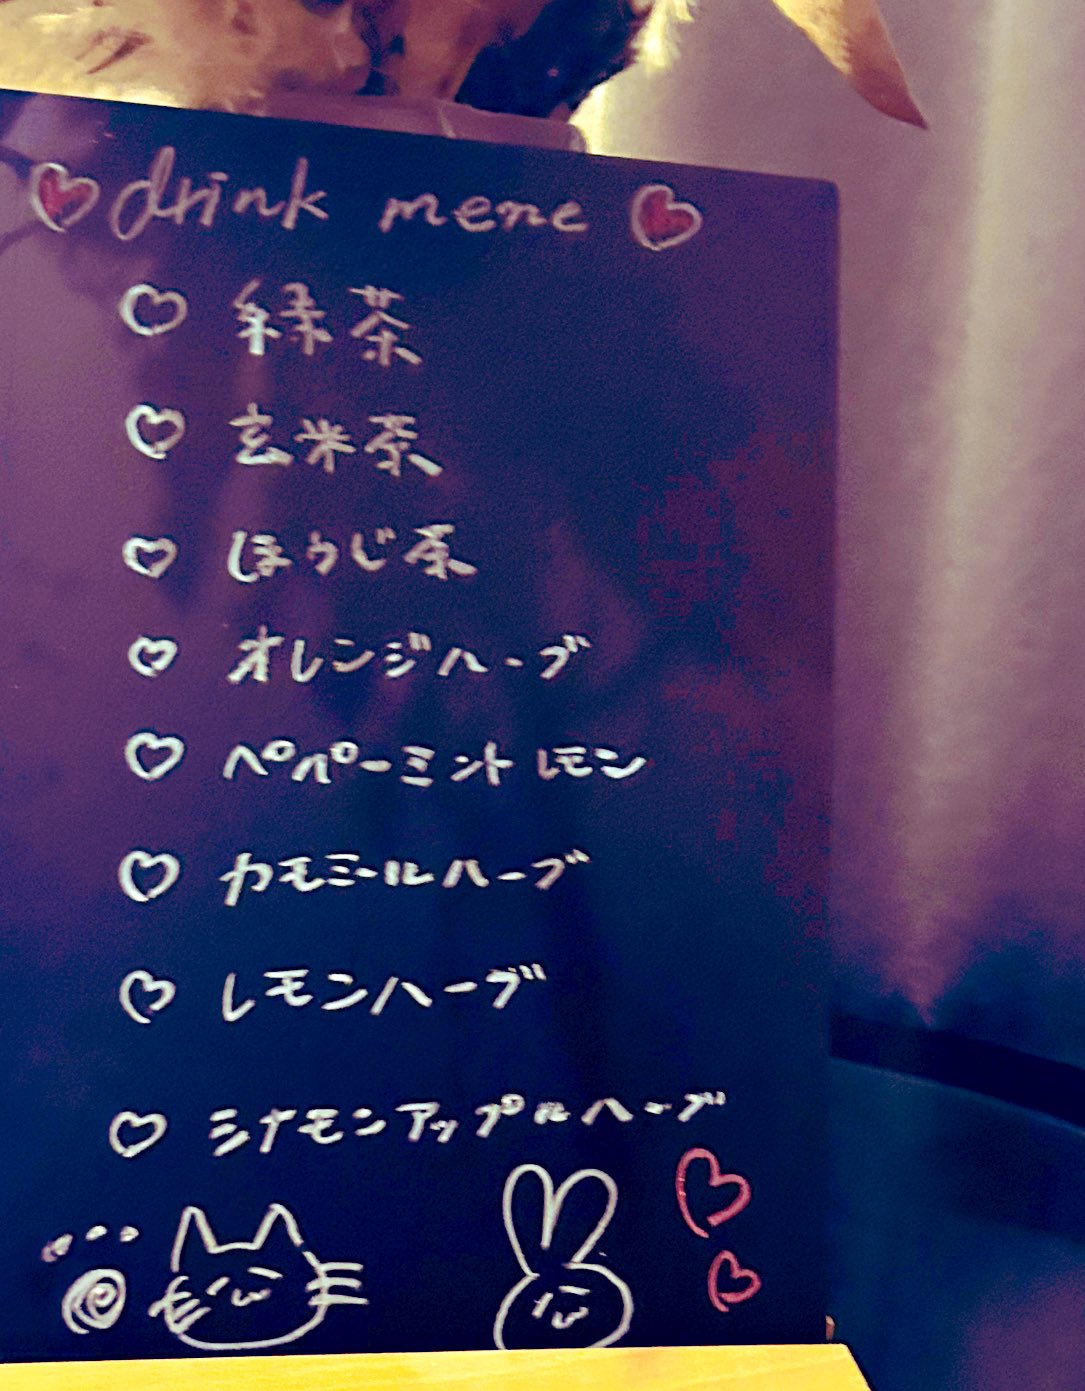 drink mene
緑茶
玄米茶
ほうじ茶
オレンジハーブ
ペパーミントレモン
カモミールハーブ
レモンハーブ
シナモンアップルハーブ